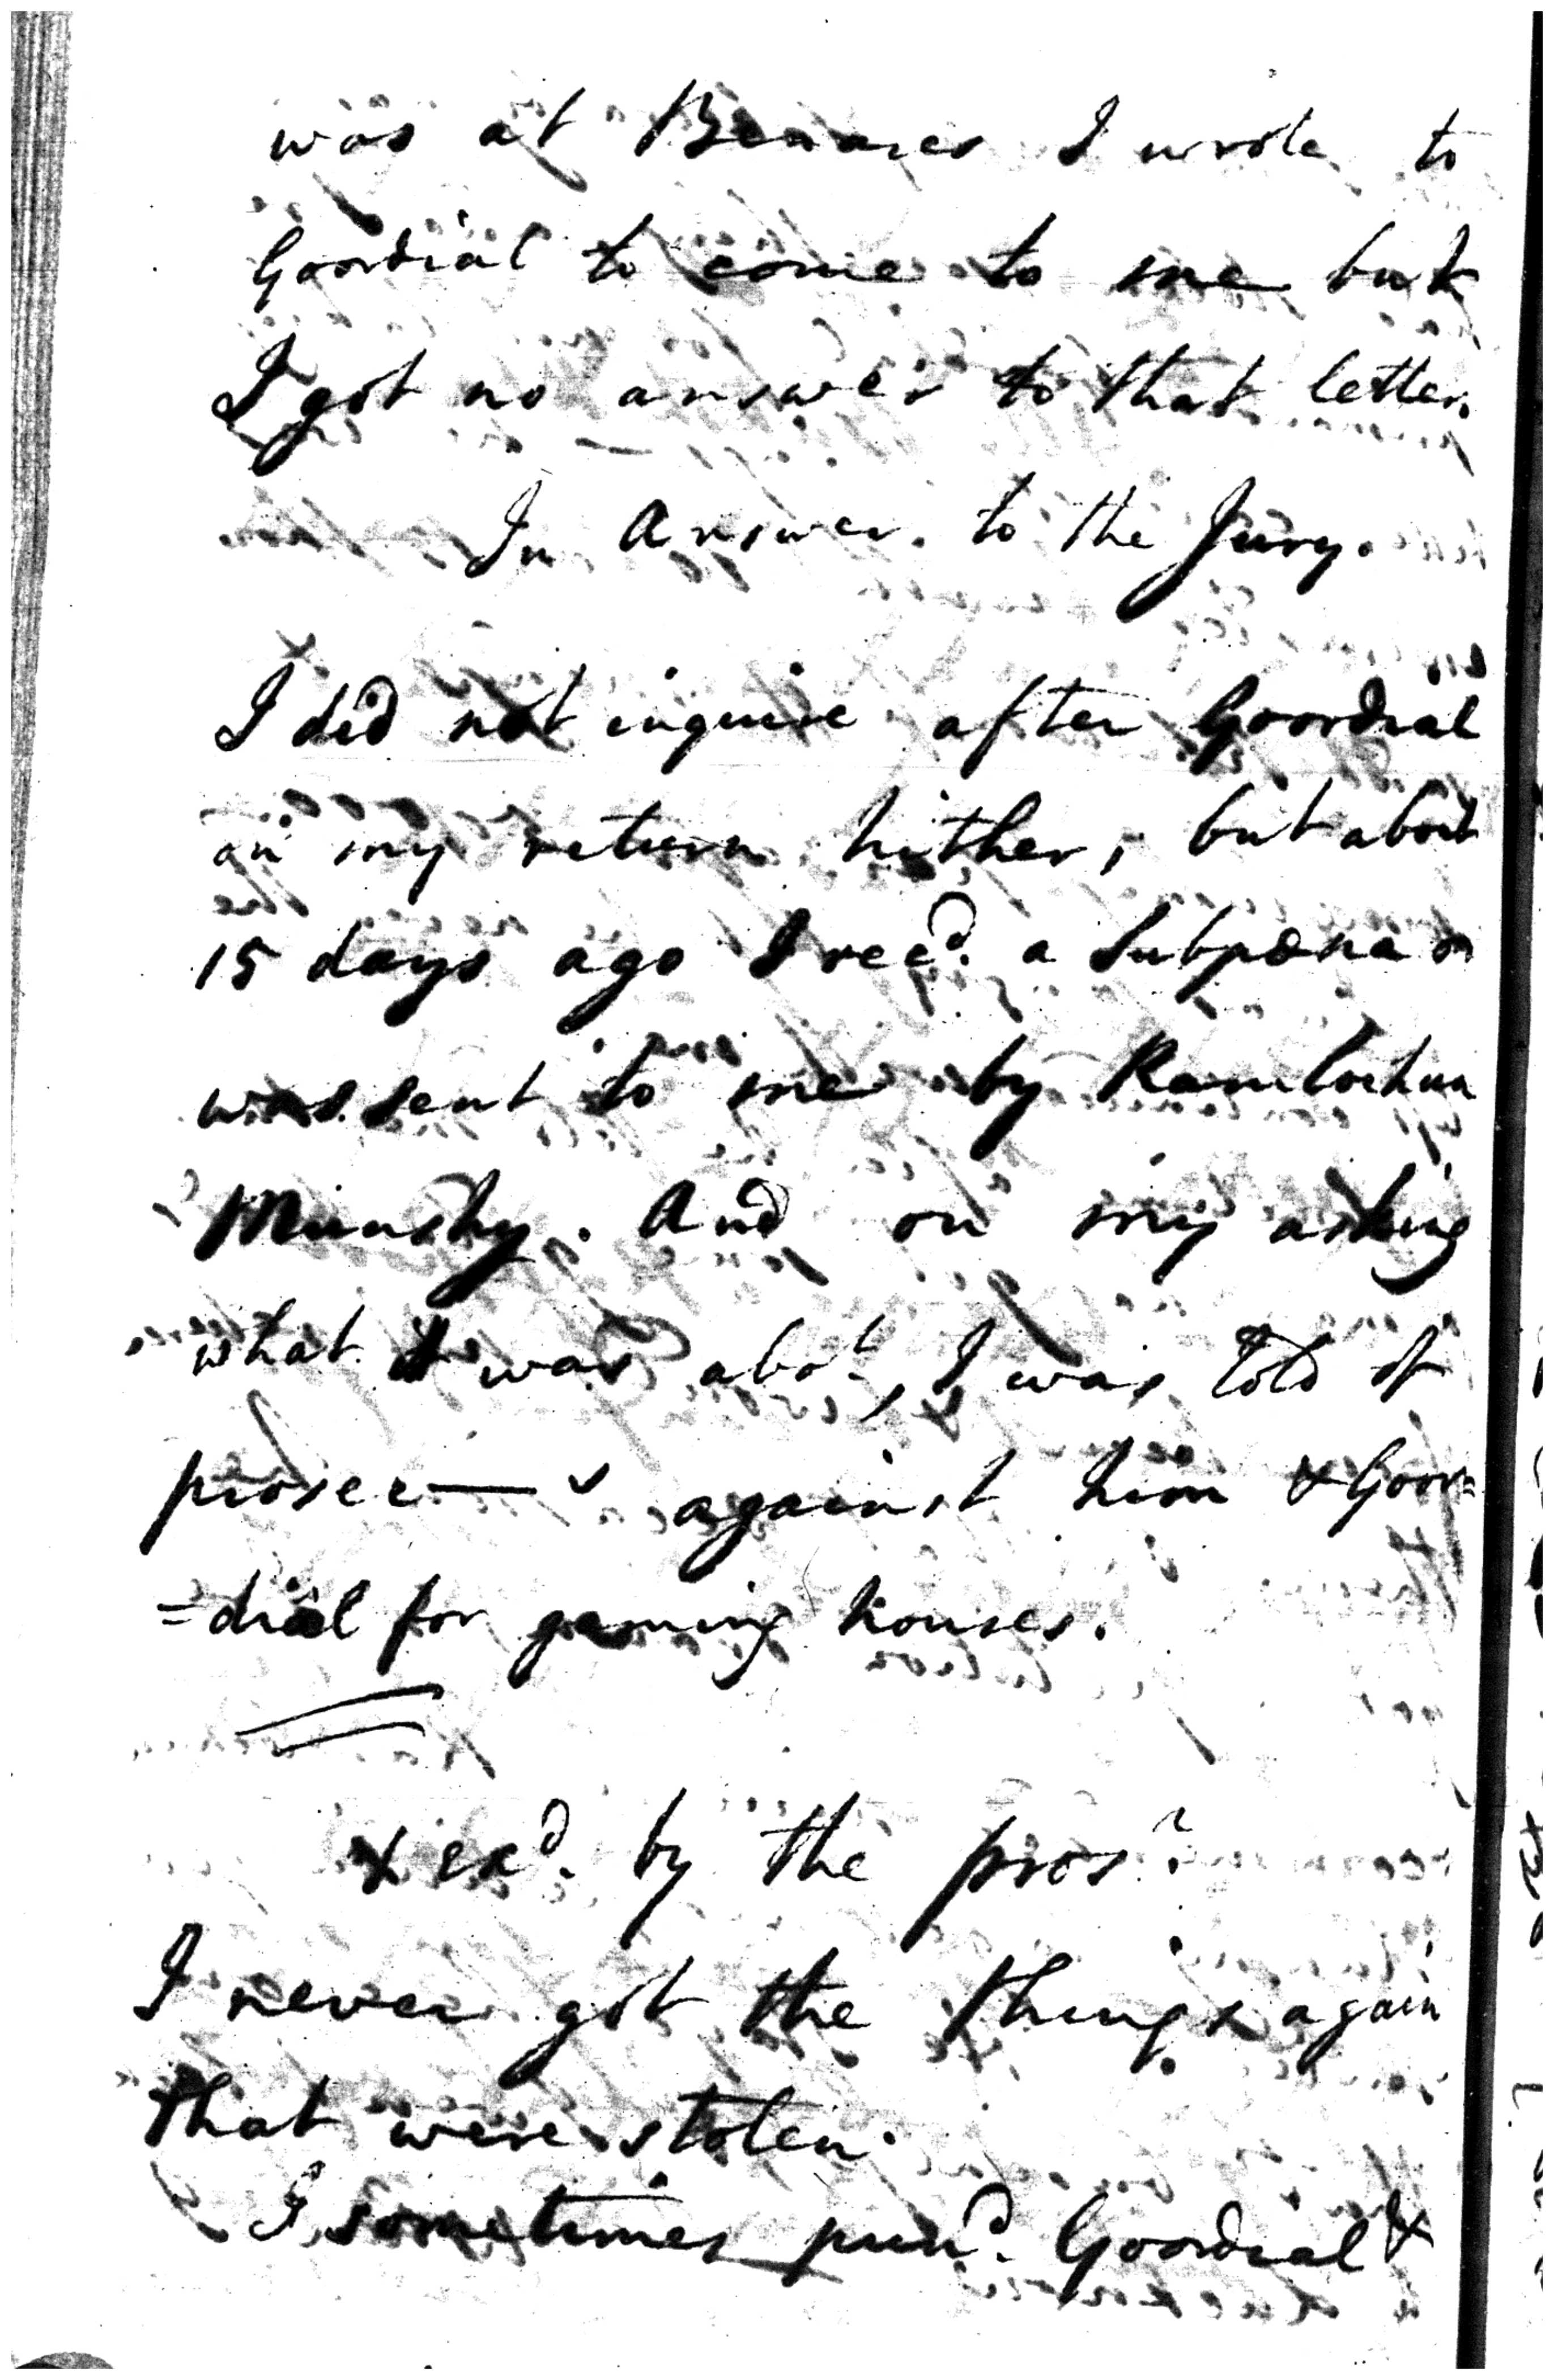 was at Benares I wrote to
Goordial to come to me but
I got no answer to that letter.
In Answer. to the Jury.
I did not inquire after Goordial
on my return hither, but about
15 days ago I recd. a Subpœna
was sent to me by Ramlochun
Munshy. And on my asking
what it was abot, I was told of
prosec—s against him & Goor=
=dial for gaming houses.
x exd. by the prosr.
I never got the things again
that were stolen.
I sometimes pund. Goordial &